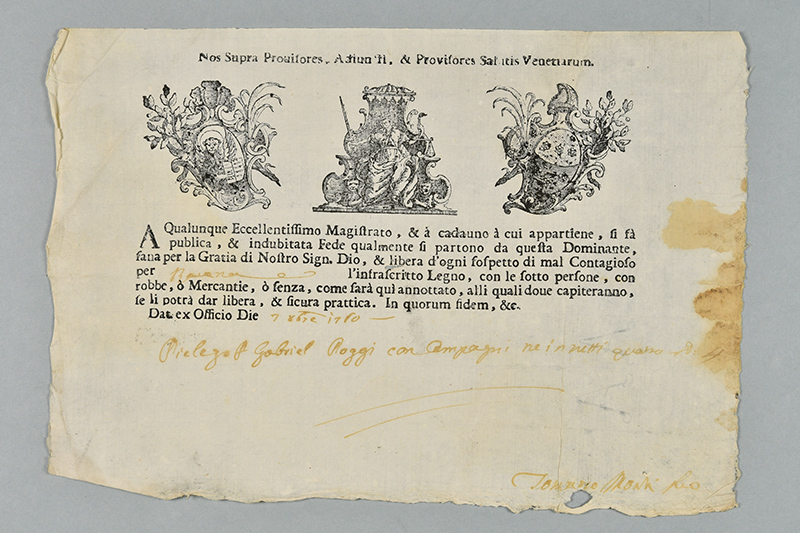 Nos Supra Proviſores, Adiuncti, & Proviſores Salutis Venetiarum.
A Qualunque Eccellentiſſimo Magiſtrato, & à cadauno à cui appartiene, ſi fà
publica, & indubitata Fede qualmente ſi partono da queſta Dominante,
ſana per la Gratia di Noſtro Sign. Dio, & libera d'ogni ſoſpetto di mal Contagioſo
per l'infraſcritto Legno, con le ſotto perſone, con
robbe, ò Mercantie, ò ſenza, come ſarà quì annottato, alli quali doue capiteranno,
ſe li potrà dar libera, & ſicura prattica. In quorum fidem, &c.
Dat. ex Officio Die 7 xbre 1760
Pielego P Gabriel Poggi con Compagni